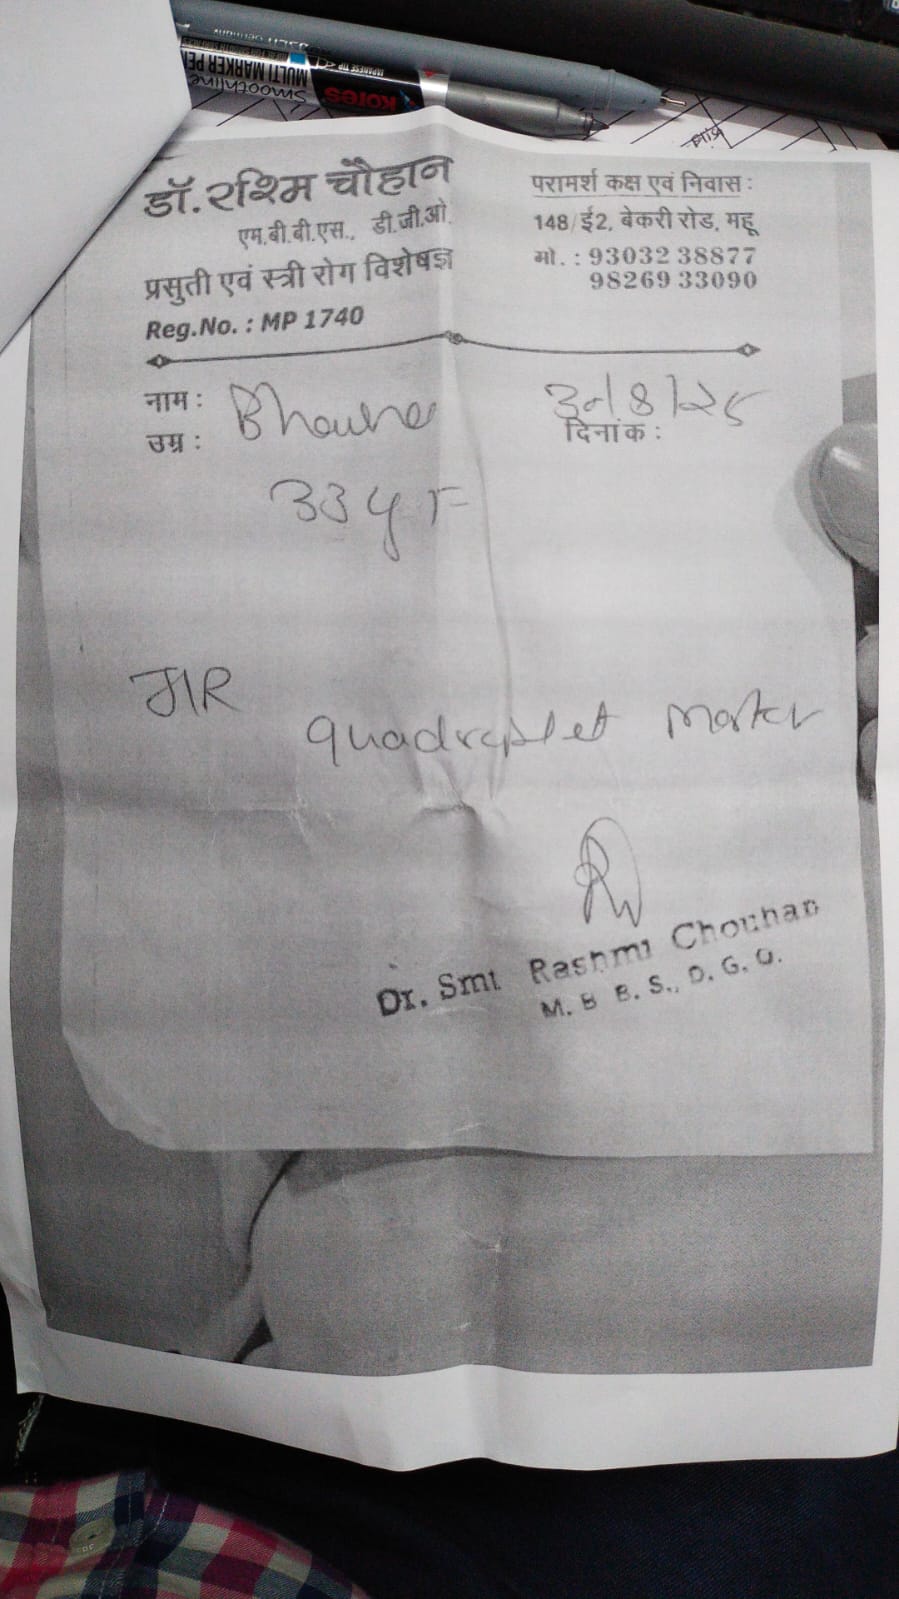 MULTI MARKER PEN
Smoothline
JAPANESE TIP
Kores
डॉ. रश्मि चौहान
एम.बी.बी.एस., डी.जी.ओ.
प्रसुती एवं स्त्री रोग विशेषज्ञ
Reg.No. : MP 1740
परामर्श कक्ष एवं निवास :
148/ई2, बेकरी रोड, महू
मो. : 93032 38877
98269 33090
नाम :
उम्र :
दिनांक :
33 y F
quadruplet marker
Dr. Smt Rashmi Chouhan
M. B B. S., D. G. O.